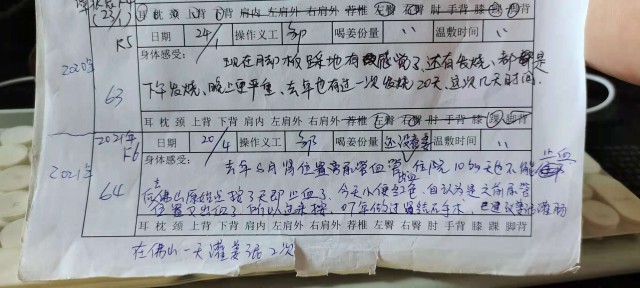 (23/1)
耳 枕 颈 上背 下背 肩内 左肩外 右肩外 脊椎 左臀 右臀 肘 手背 膝 踝 脚背
K5
日期 24/1 操作义工 喝姜份量 无 温敷时间 无
2020年
身体感受: 现在用却板踩地有感觉了,还有发烧,都是
63
下午发烧,晚上更严重,去年也有过一次发烧20天,这次几天时间.
耳 枕 颈 上背 下背 肩内 左肩外 右肩外 脊椎 左臀 右臀 肘 手背 膝 踝 脚背
2021年
K6
日期 20/4 操作义工 喝姜份量 还没 温敷时间
2021年
身体感受: 去年6月肾位置 尿管血管 住院10多天也不能止血
64
去佛山原始点按了天即止血了,今天小便红色,自认为是之前尿管
位置又出血了,所以过来按,07年做过肾结石手术,已建议去灌肠
耳 枕 颈 上背 下背 肩内 左肩外 右肩外 脊椎 左臀 右臀 肘 手背 膝 踝 脚背
在佛山一天灌姜泥2次